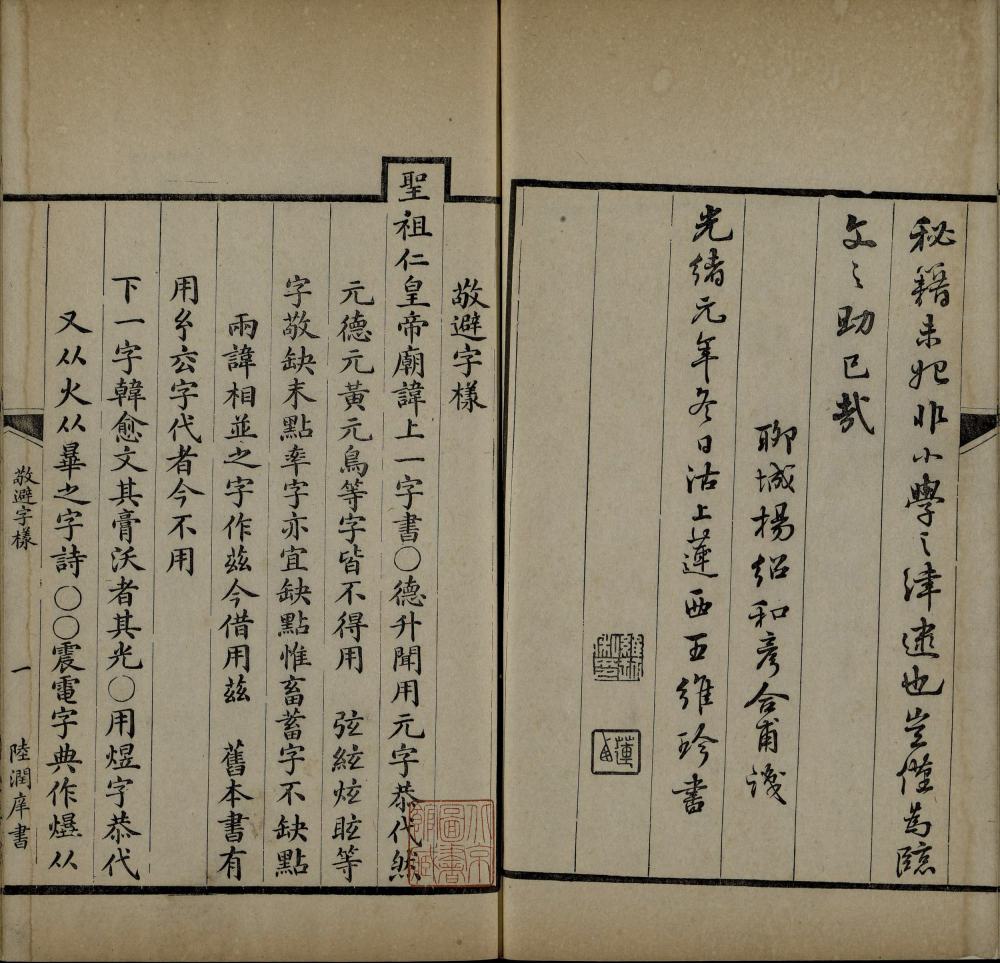 秘籍未始非小學之津逮也豈僅為臨
文之助已哉
聊城楊紹和彥合甫識
光緒元年冬日沽上蓮西王維珍書
敬避字樣
聖祖仁皇帝廟諱上一字書〇德升聞用元字恭代然
元德元黃元鳥等字皆不得用　弦絃炫眩等
字敬缺末點率字亦宜缺點惟畜蓄字不缺點
兩諱相並之字作茲今借用兹　舊本書有
用糸玄字代者今不用
下一字韓愈文其膏沃者其光〇用煜字恭代
又从火从畢之字詩〇〇震電字典作爗从
敬避字樣
一
陸潤庠書